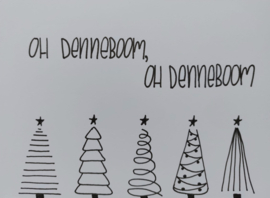 OH DENNEBOOM,
OH DENNEBOOM